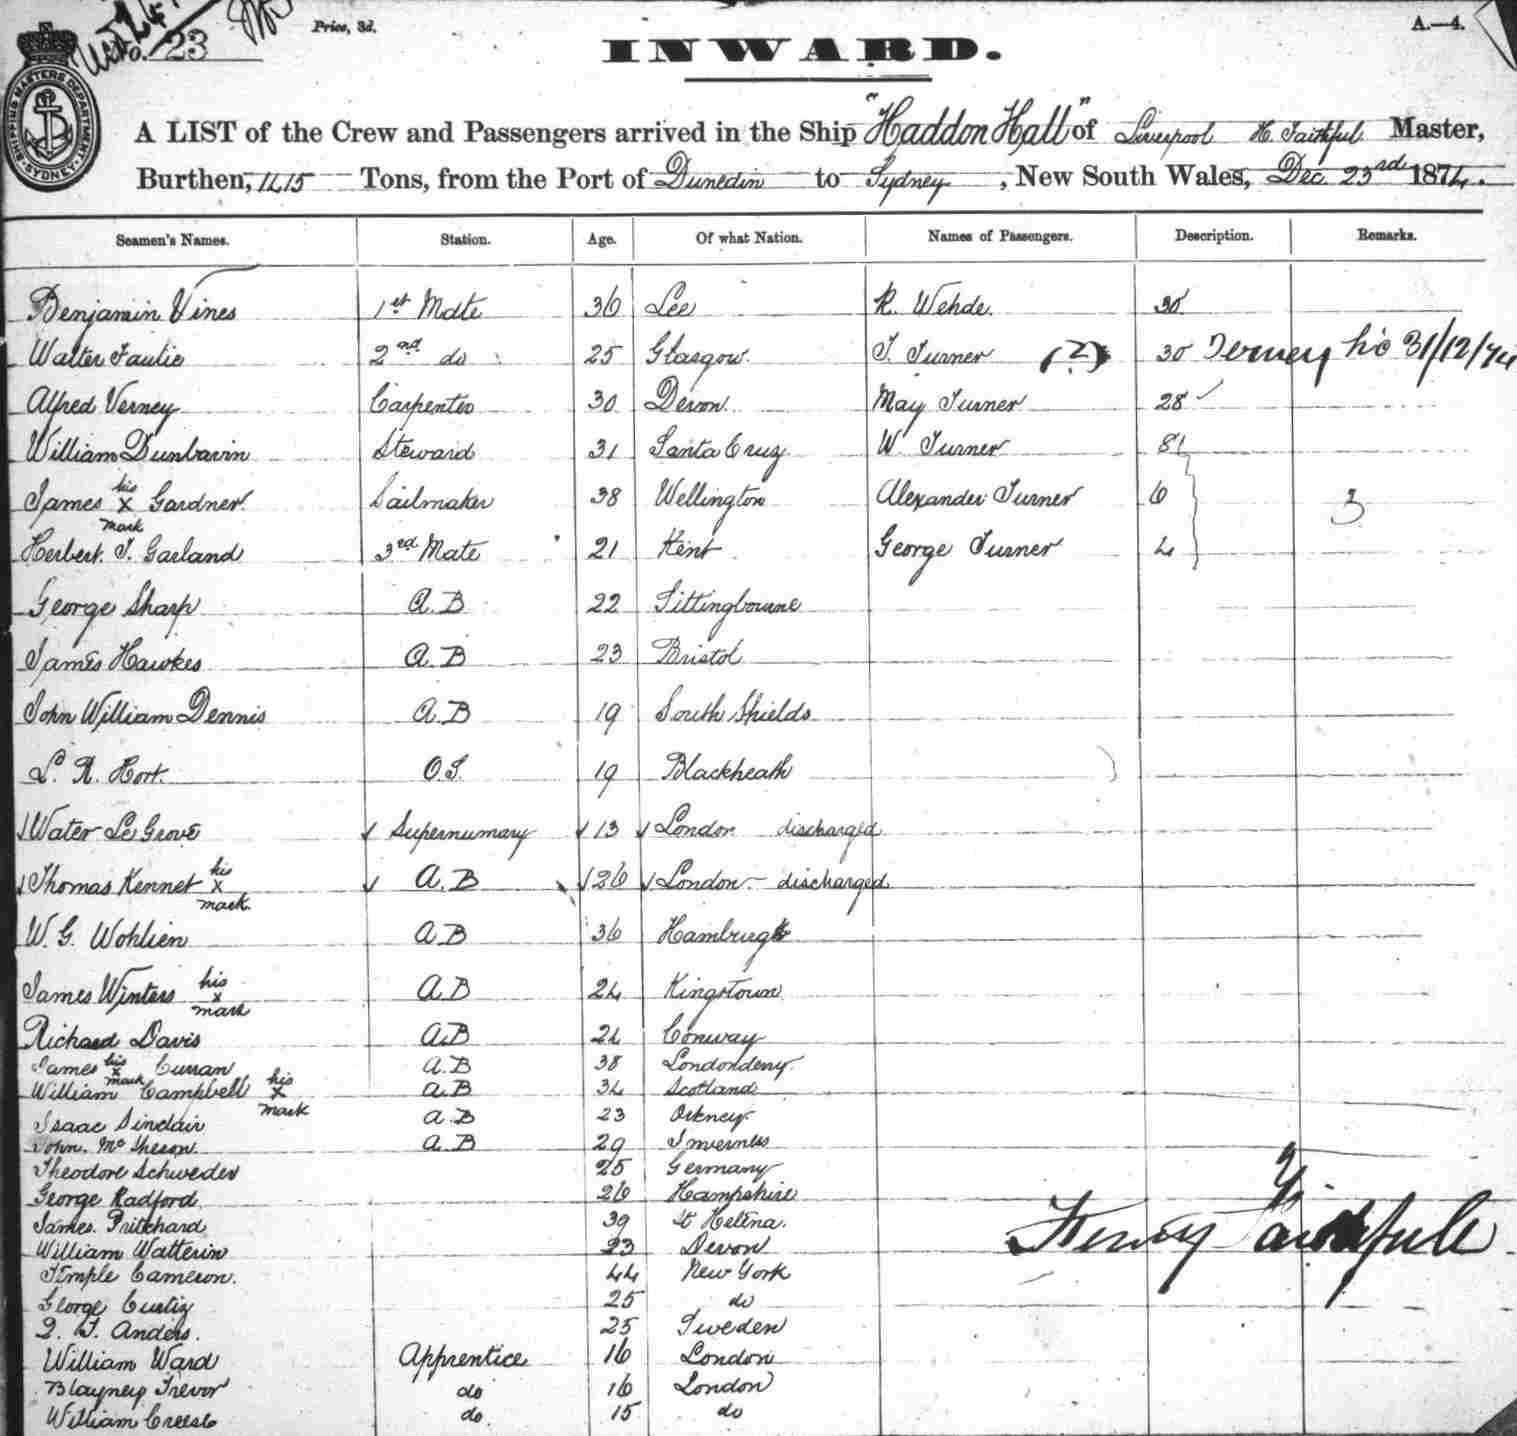 No. 23
Price, 3d.
A.—4.
INWARD.
SHIPPING MASTERS DEPARTMENT SYDNEY
A LIST of the Crew and Passengers arrived in the Ship "Haddon Hall" of Liverpool H. Faithful Master,
Burthen, 1415 Tons, from the Port of Dunedin to Sydney, New South Wales, Dec. 23rd 1874.
Seamen's Names. Station. Age. Of what Nation. Names of Passengers. Description. Remarks.
Benjamin Vines 1st Mate 36 Lee R. Wehde 30
Walter 2nd do 25 Glasgow T. Turner (2) 30 31/12/74
Alfred Verney Carpenter 30 Devon May Turner 28
William Dunbavin Steward 31 Santa Cruz W. Turner 8
James his x mark Gardner Sailmaker 38 Wellington Alexander Turner 6 3
Herbert. T. Garland 3rd Mate 21 Kent George Turner 4
George Sharp A.B 22 Sittingbourne
James Hawkes A.B 23 Bristol
John William Dennis A.B 19 South Shields
L. R. Hort. O.S. 19 Blackheath
Water Le Grove Supernumary 13 London discharged
Thomas Kennet his x mark A.B 26 London discharged
W. G. Wohlien A.B 36 Hamburg
James Winters his x mark A.B 24 Kingstown
Richard Davis A.B 24 Conway
James his x mark Curran A.B 38 Londonderry
William Campbell his x mark A.B 34 Scotland
Isaac Sinclair A.B 23 Orkney
John. A.B 29 Inverness
Theodore Schweder 25 Germany
George Radford 26 Hampshire
James. Pritchard 39 St Helena.
William Watterin 23 Devon
Temple Cameron. 44 New York
George Curtiz 25 do
T. Anders. 25 Sweden
Henry Faithfull
William Ward Apprentice 16 London
Blayney Trevor do 16 London
William do 15 do